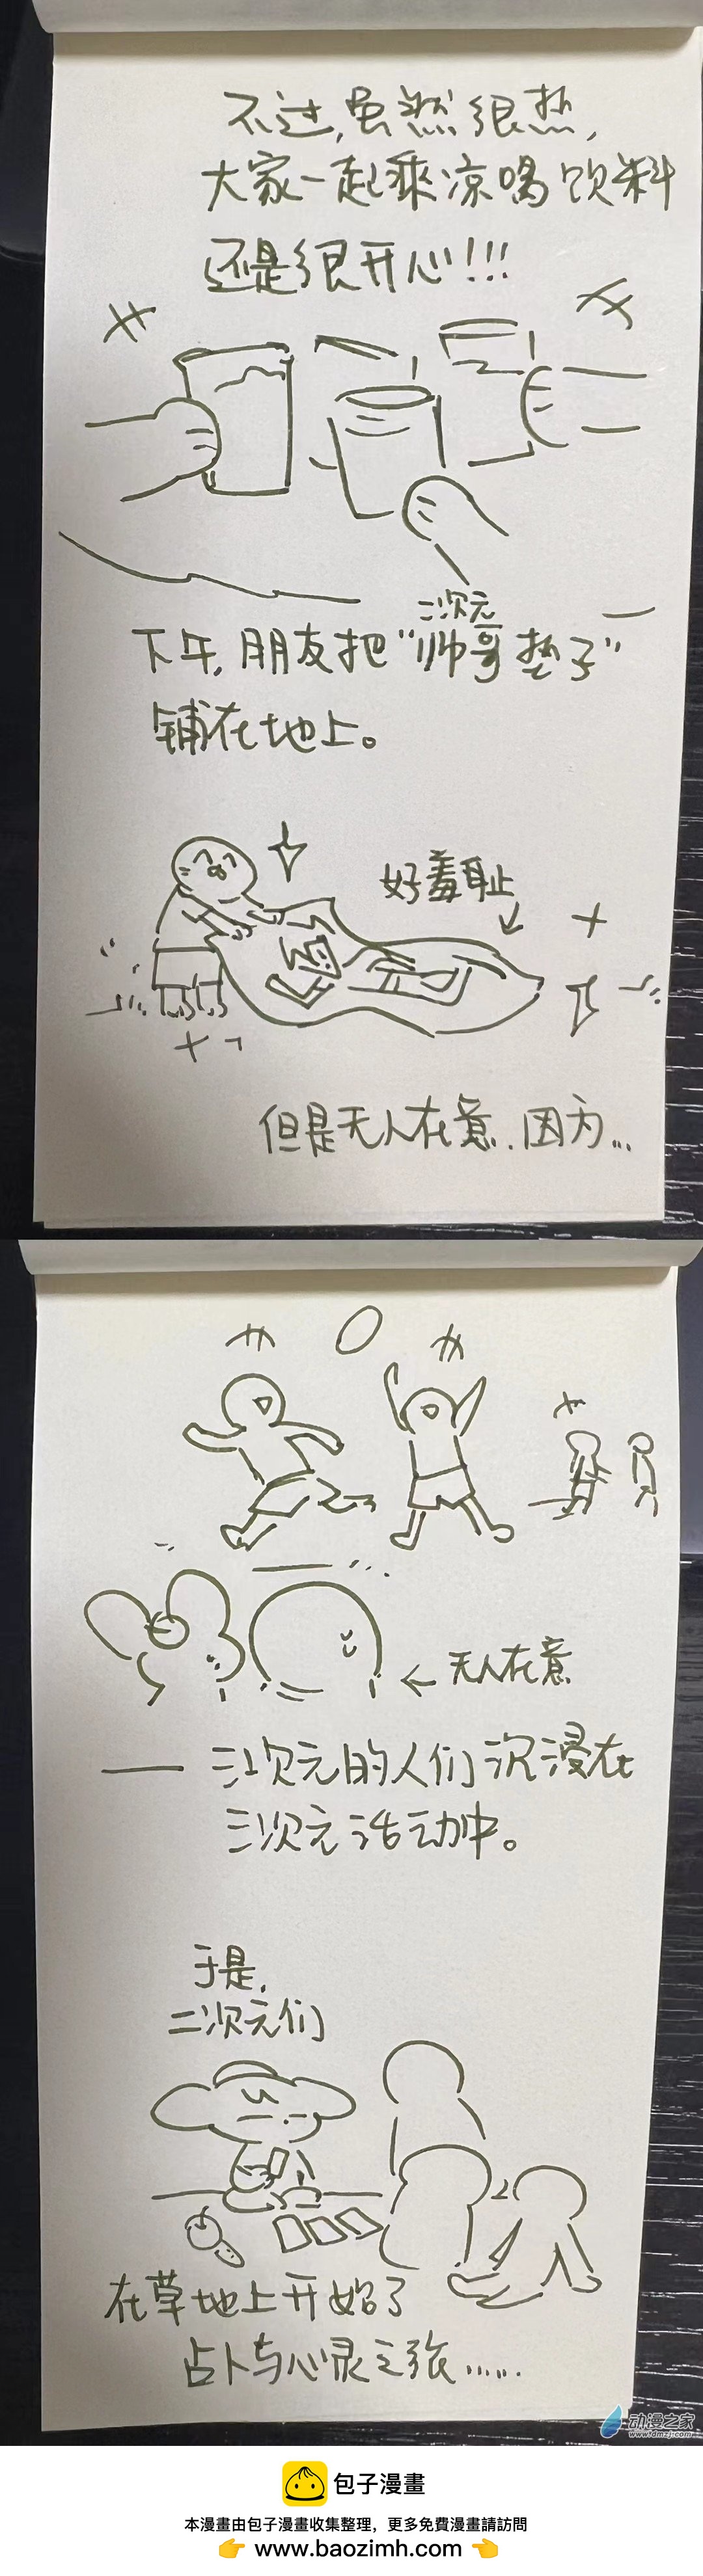 不过,虽然很热,
大家一起乘凉喝饮料
还是很开心!!!
二次元
下午,朋友把“帅哥垫子”
铺在地上。
好羞耻
但是无人在意.因为...
无人在意
——三次元的人们沉浸在
三次元活动中。
于是,
二次元们
在草地上开始了
占卜与心灵之旅......
动漫之家
www.dmzj.com
包子漫畫
本漫畫由包子漫畫收集整理,更多免費漫畫請訪問
👉 www.baozimh.com 👈